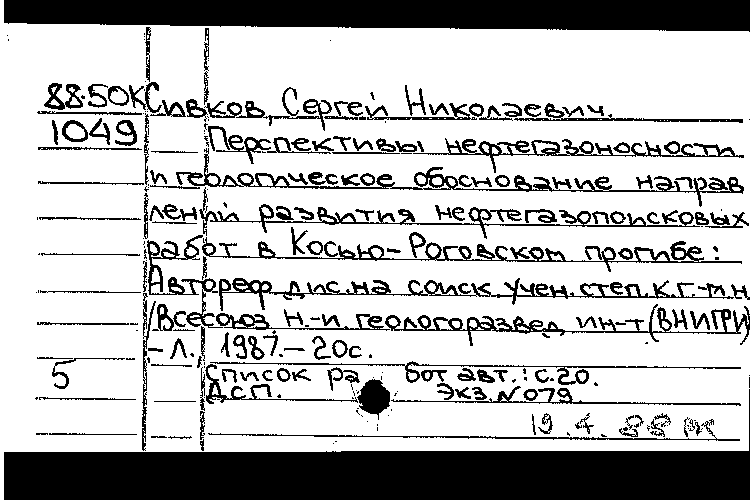 88.50К Сивков, Сергей Николаевич.
1049 Перспективы нефтегазоносности
и геологическое обоснование направ
лений развития нефтегазопоисковых
работ в Косью-Роговском прогибе:
Автореф дис.на соиск.учен.степ.к.г.-м.н
/Всесоюз. н.-и. геологоразвед. ин-т(ВНИГРИ)
-Л., 1987.-20с.
5 Список работ авт.: с.20.
ДСП. Экз.№079.
19.4.88